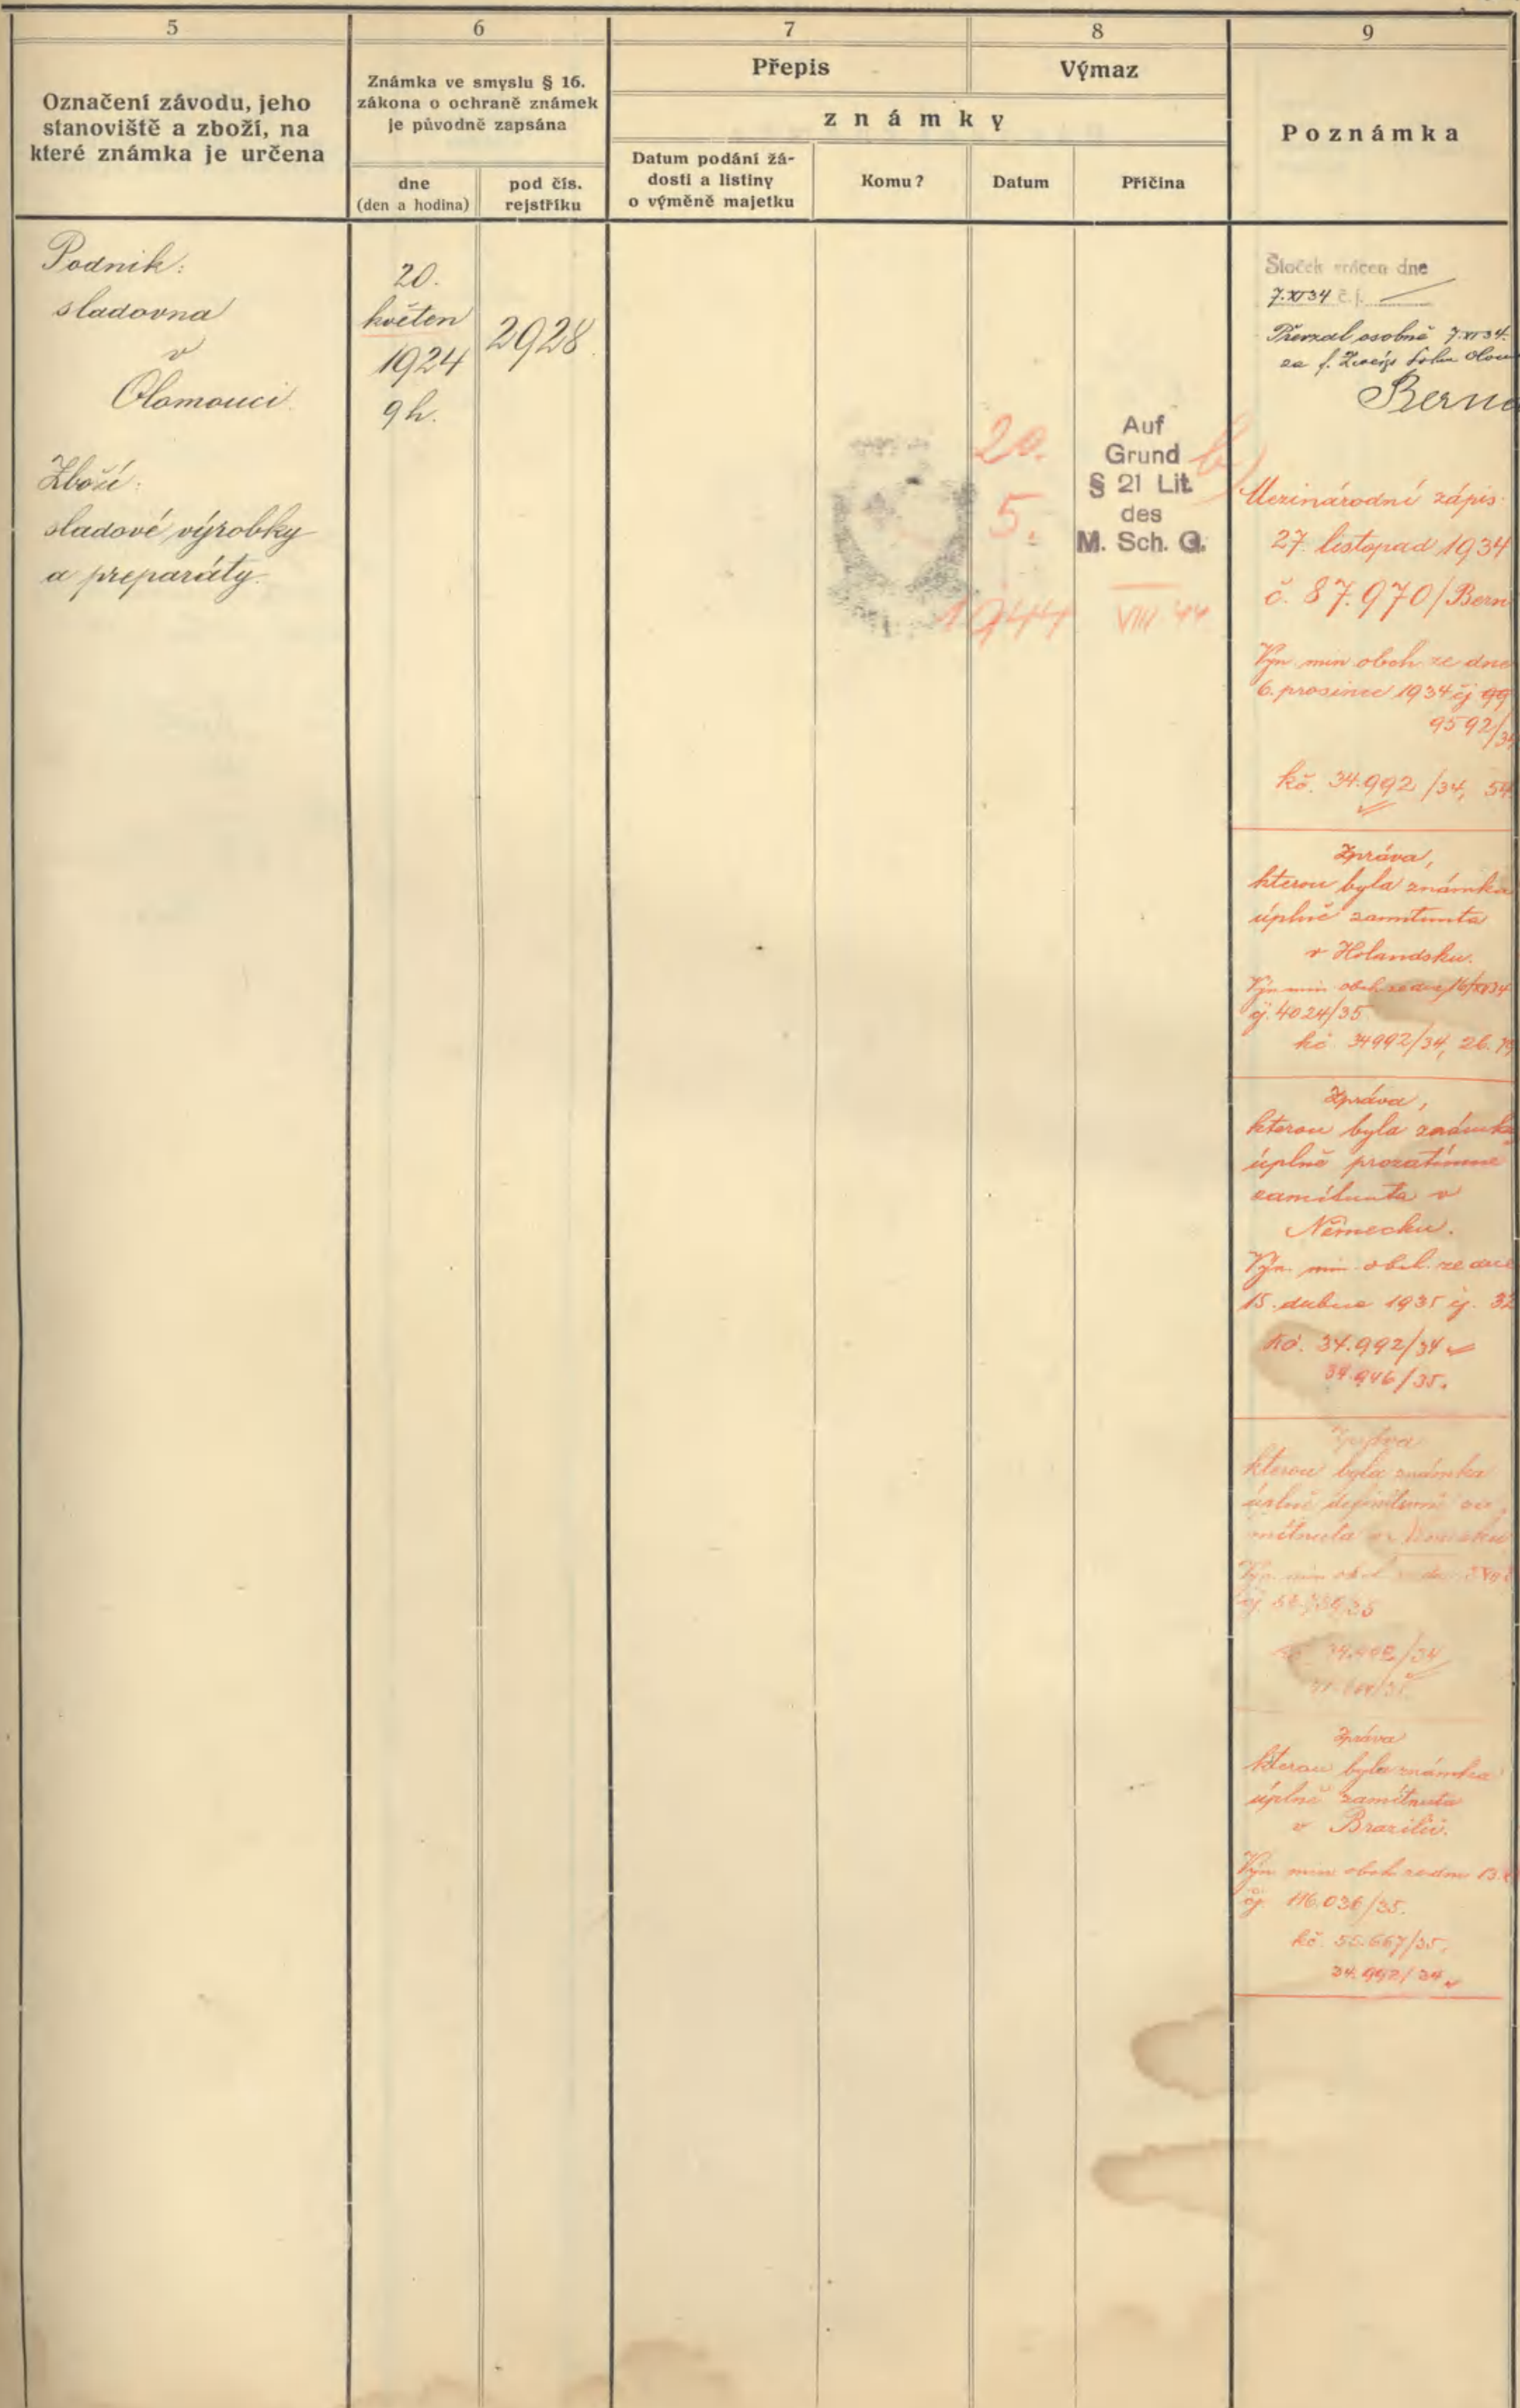 5
Označení závodu, jeho
stanoviště a zboží, na
které známka je určena
6
Známka ve smyslu § 16.
zákona o ochraně známek
je původně zapsána
dne
(den a hodina)
pod čís.
rejstříku
7
8
Přepis
Výmaz
známky
Datum podání žá-
dosti a listiny
o výměně majetku
Komu?
Datum
Příčina
9
Poznámka
Podnik:
sladovna
v
Olomouci.
Zboží:
sladové výrobky
a preparáty.
20.
květen
1924
9h.
2928.
20.
5.
1944
Auf
Grund
§ 21 Lit. b)
des
M. Sch. G.
VIII 44
Štoček vrácen dne
7.XI 34 č.j.
Převzal osobně 7.XI 34.
za f.
Mezinárodní zápis:
27. listopad 1934
č. 87.970/Bern
Výn. min. obch. ze dne
6. prosince 1934 čj. 99
9592/34
kč. 34.992/34, 54
Zpráva,
kterou byla známka
úplně zamítnuta
v Holandsku.
Výn. min. obch. ze dne
čj. 4024/35
kč. 34992/34, 26.
Zpráva,
kterou byla známka
úplně prozatímně
zamítnuta v
Německu.
Výn. min. obch. ze dne
15. dubna 1935 čj. 32
kč. 34.992/34
34.946/35.
Zpráva
kterou byla známka
úplně definitivně za-
mítnuta v Německu
Výn. min. obch.
34.992/34
Zpráva
kterou byla známka
úplně zamítnuta
v Brazilii.
Výn. min. obch. ze dne 13.
čj. 116.036/35.
kč. 55.667/35,
34.992/34